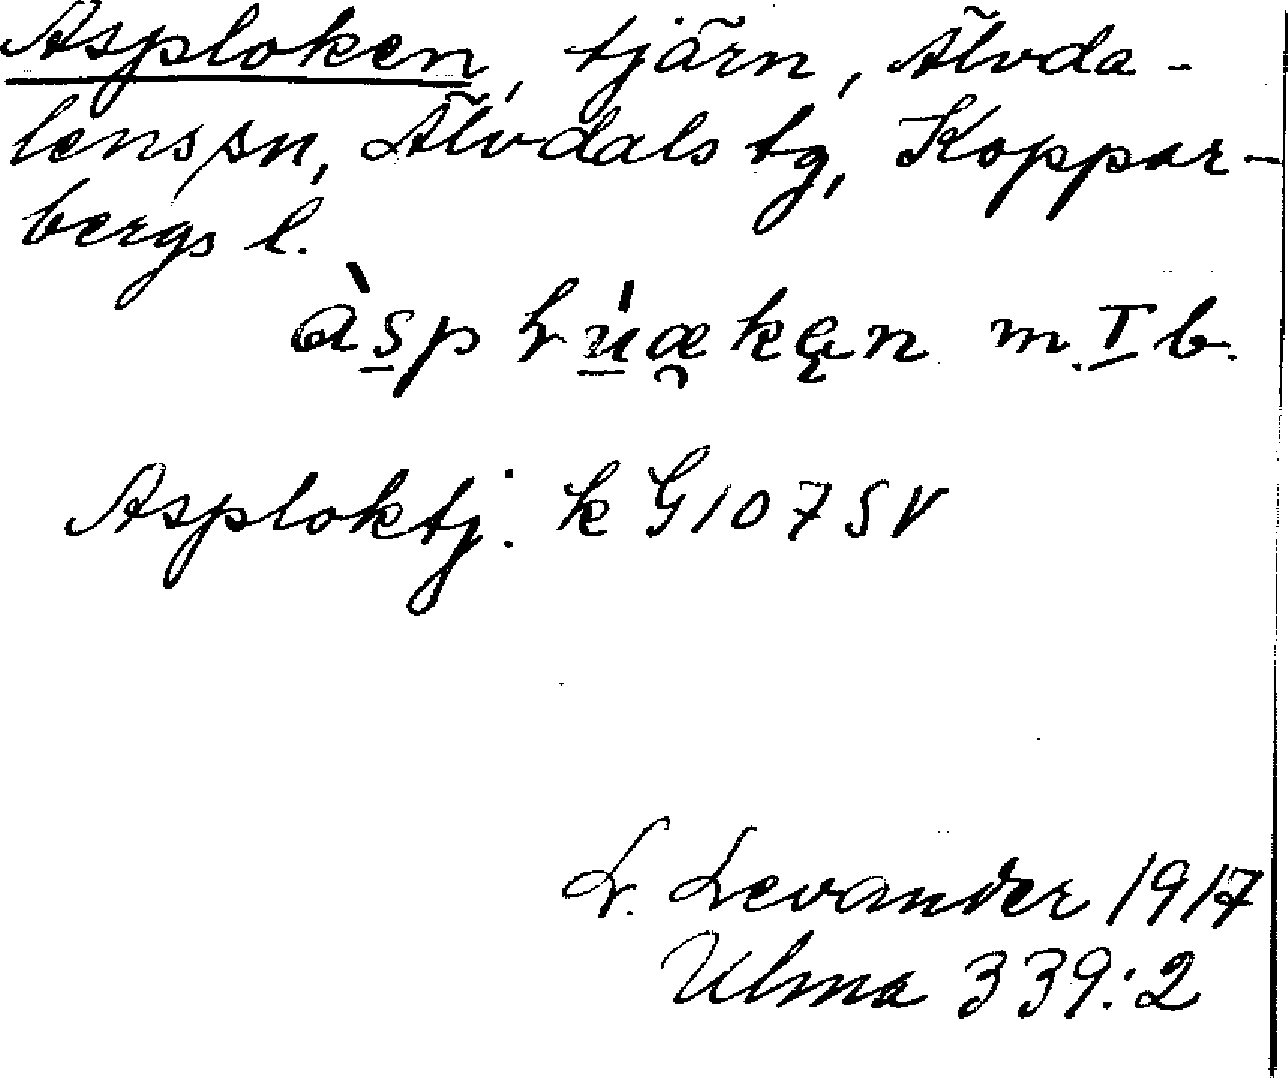 Asploken, tjärn, Älvda-
lens sn, Älvdals tg, Koppar-
bergs l.
m. I b.
Asploktj. k G 107 SV
L. Levander 1917
Ulma 339:2